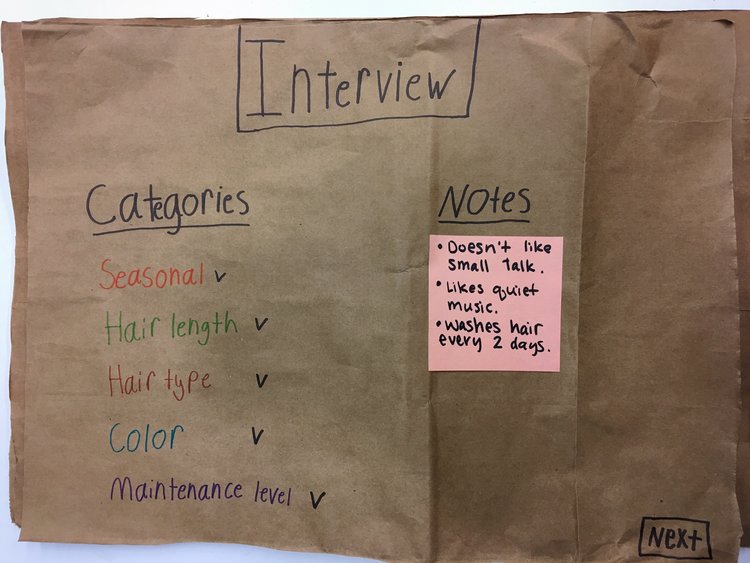 Interview
Categories
Seasonal ✓
Hair length ✓
Hair type ✓
Color ✓
Maintenance level ✓
Notes
• Doesn't like
small Talk.
• Likes quiet
music.
• Washes hair
every 2 days.
Next